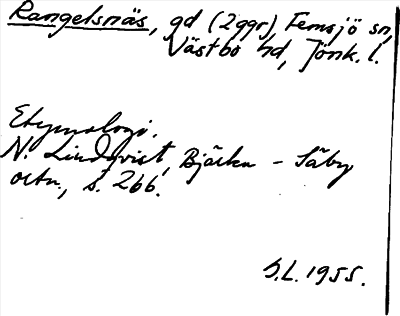 Rangelsnäs, gd (2 ggr), Femsjö sn,
Västbo hd, Jönk. l.
Etymologi.
N. Lindqvist, Bjärka - Säby
ortn., s. 266.
S.L. 1955.